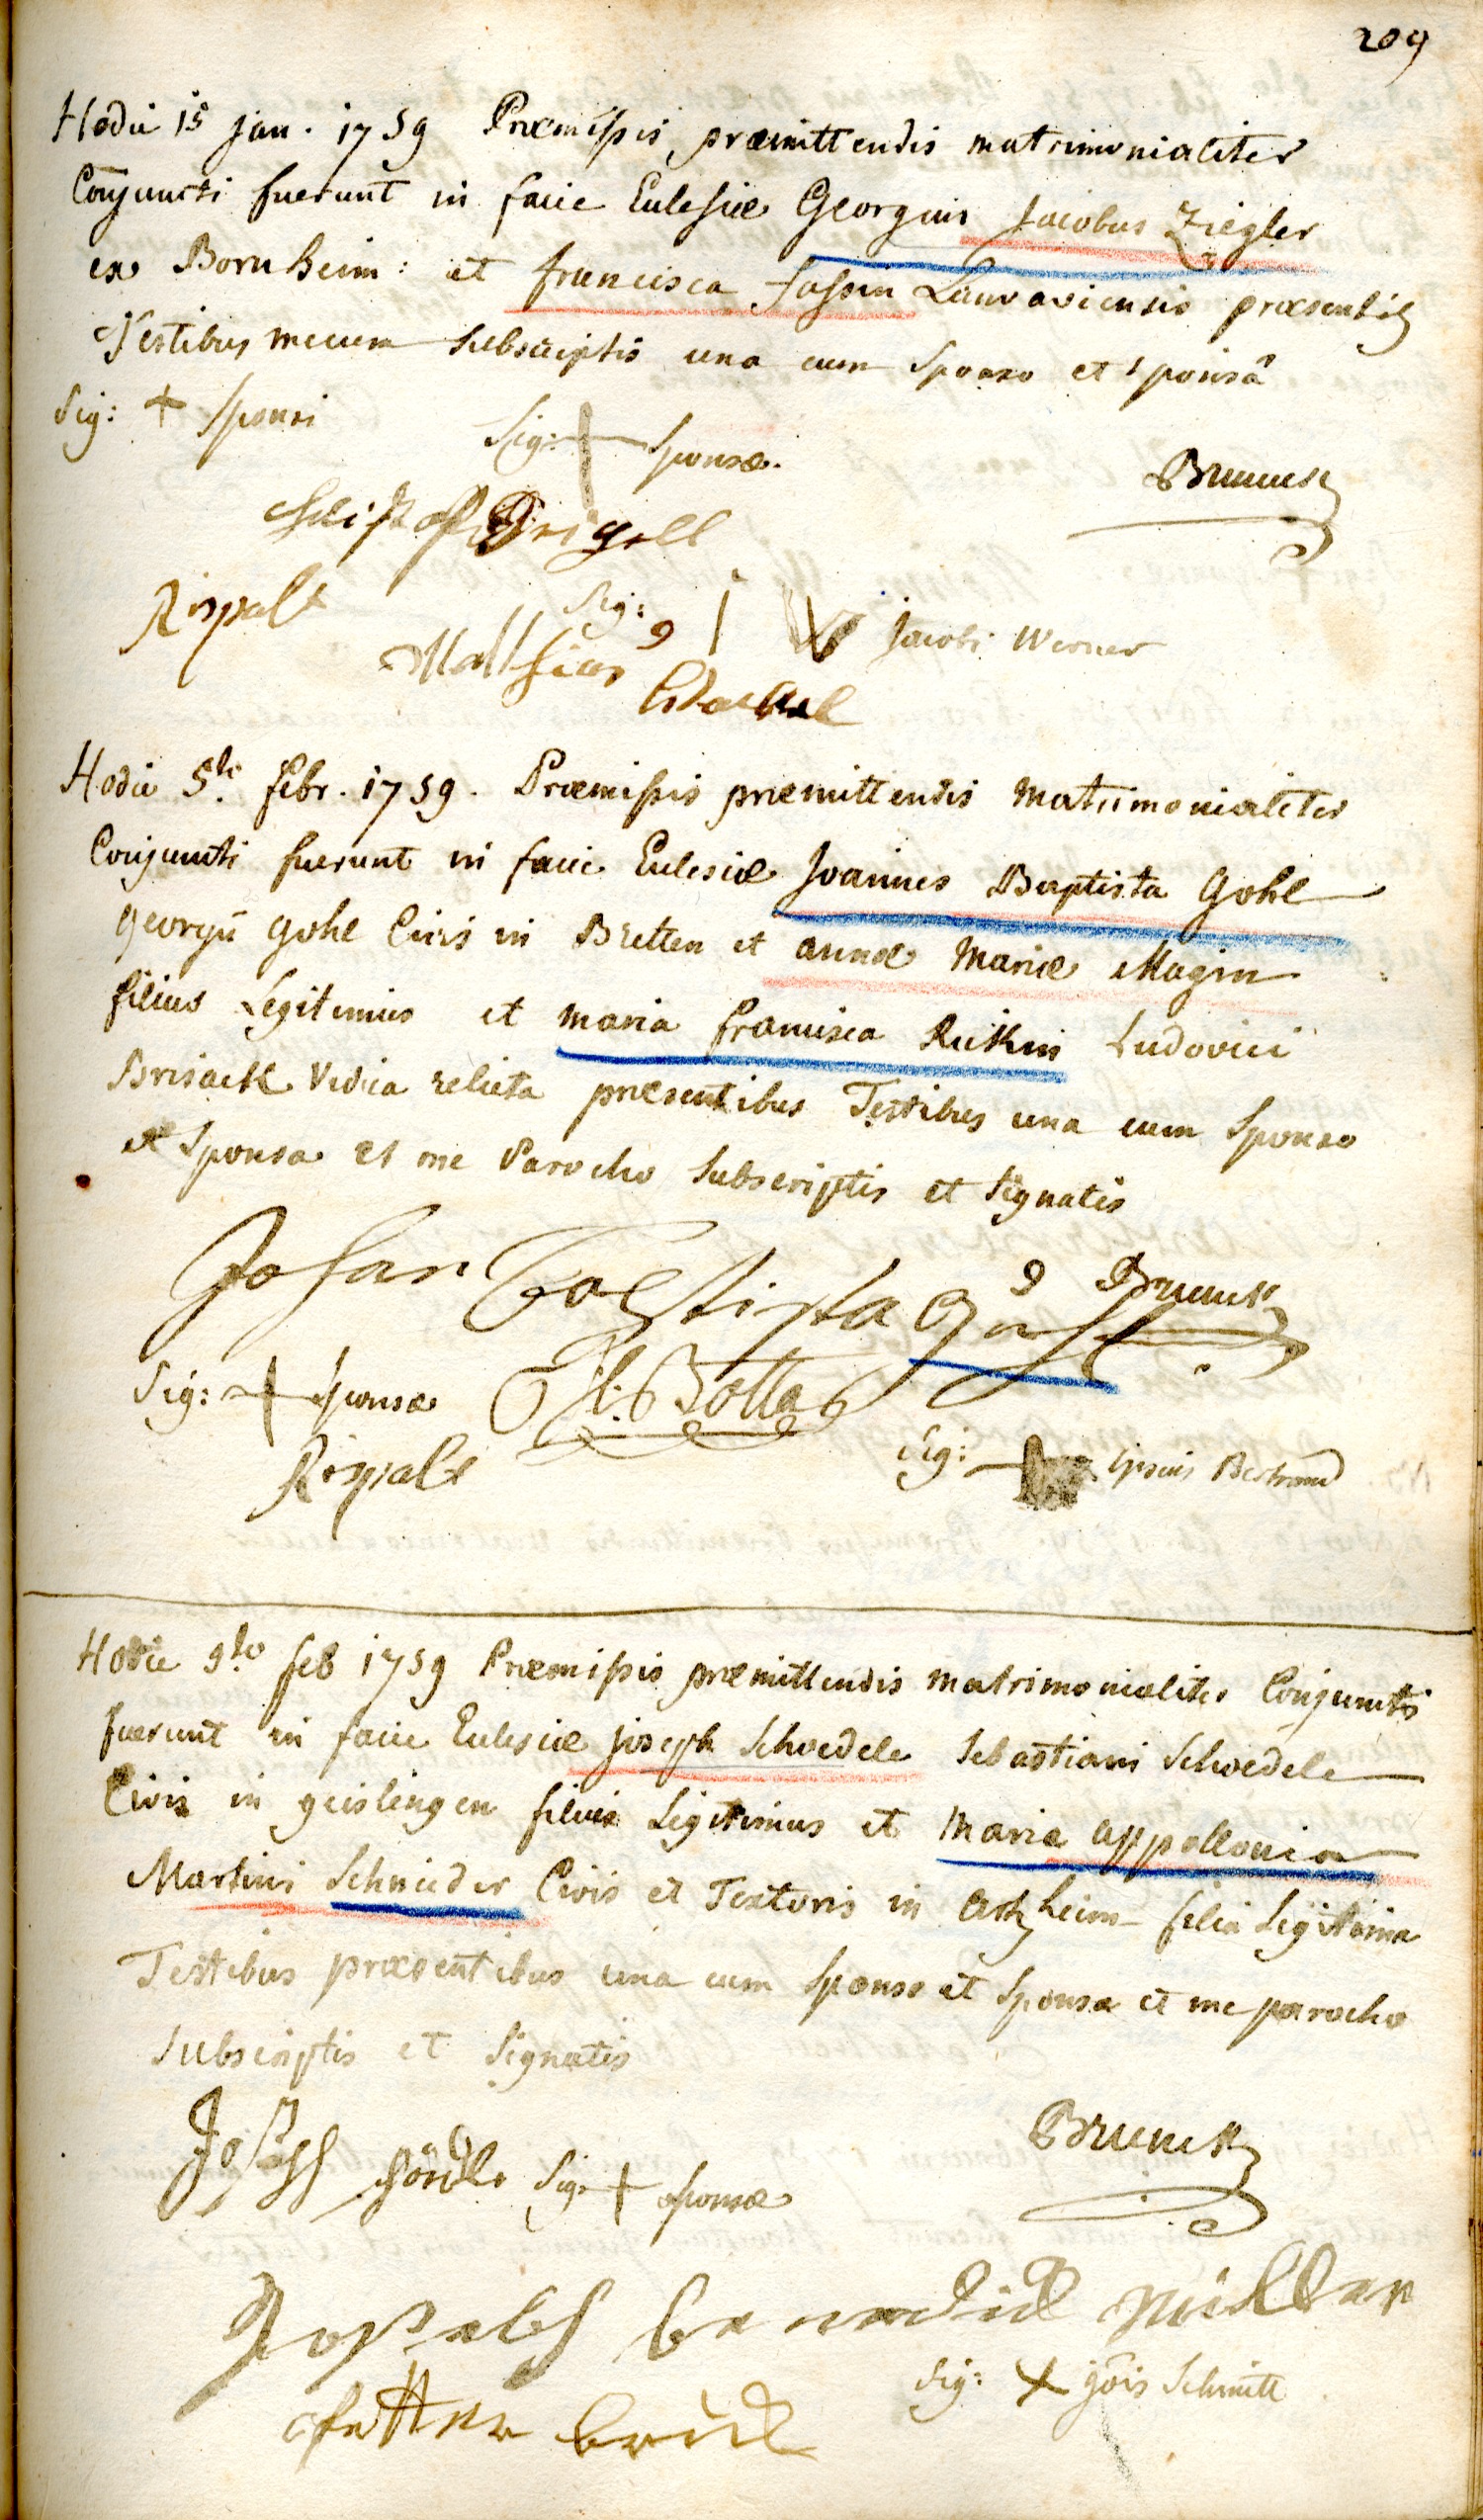 209
Hodie 15 Jan. 1759 Præmissis præmittendis matrimonialiter
Conjuncti fuerunt in facie Eclesiæ Georgius Jacobus Ziegler
ex Bornheim: et francisca Landaviensis præsentib9
Testibus mecum subscriptis una cum Sponso et sponsâ
Sig: + Sponsi
Sig: + Sponsæ.
Brunck
Rispalt
Sig: W Jacobi Werner
Matthias
Hodie 5to febr. 1759. Præmissis præmittendis matrimonialiter
Conjuncti fuerunt in facie Eclesiæ Joannes Baptista Gohl
georgii gohl Civis in Bretten et annæ Mariæ Magin
filius Legitimus et maria francisca Ludovici
Brisack Vidua relicta præsentibus Testibus una cum Sponso
et Sponsa et me Parocho Subscriptis et Signatis
Johan Baptista
Brunck
Sig: + Sponsæ
Botta
Rispalt
Sig: + Bertrand
Hodie 9to feb 1759 Præmissis præmittendis matrimonialiter Conjuncti
fuerunt in facie Eclesiæ joseph Schoedele Sebastiani Schoedele
Civis in geislingen filius Legitimus et Maria appollonia
Martini Schnieder Civis et Textoris in Artzheim filia Legitima
Testibus præsentibus una cum Sponso et Sponsa et me parocho
Subscriptis et Signatis
Brunck
Sig. + sponsæ
müller
Sig: + jois Schmitt